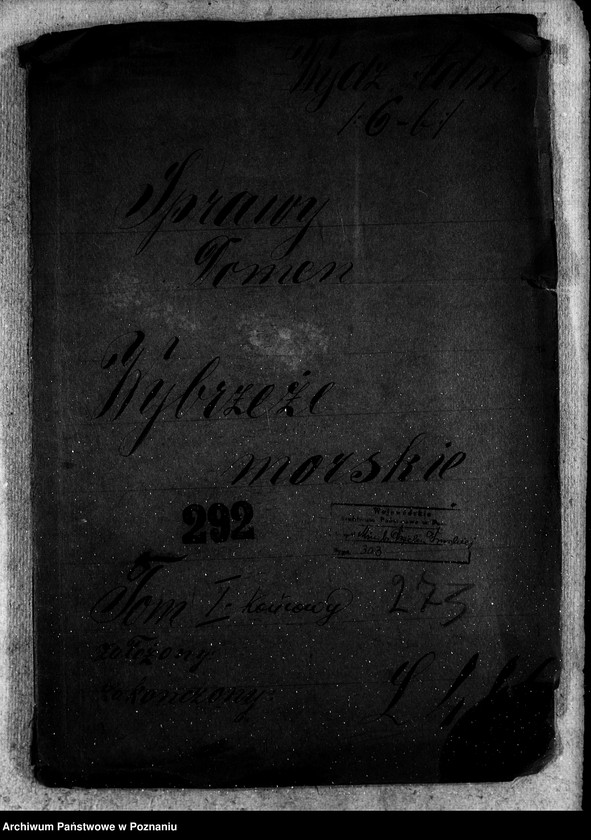 Wydz. Adm.
/: 6-b :/
Sprawy
Pomen
Wybrzeże
morskie
292
Wojewódzkie
Archiwum Państwowe w Poz.
303
Tom I. końcowy 273
założony
zakończony:
Archiwum Państwowe w Poznaniu